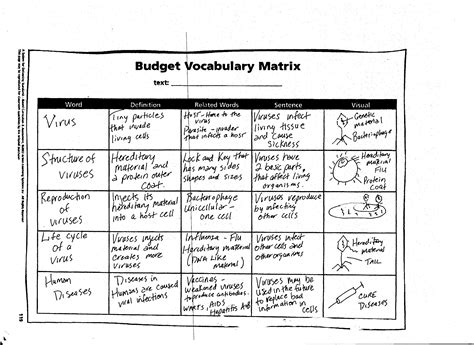 Budget Vocabulary Matrix
text:
Word Definition Related Words Sentence Visual
Virus
Tiny particles
that invade
living cells
Host - Home to the
virus
Parasite - invader
that infects a host
Viruses infect
living tissue
and cause
sickness
Genetic
material
Bacteriophage
Structure of
viruses
Hereditary
material and
a protein outer
coat.
Lock and Key that
has many sides
shapes and sizes
Viruses have
2 basic parts
that affect living
organisms.
Hereditary
material
FLU
Protein
Coat
Reproduction
of
viruses
Injects its
hereditary material
into a host cell
Bacteriophage
Unicellular -
one cell
Viruses reproduce
by infecting
other cells
Life cycle
of a
virus
Viruses injects
material and
creates more
viruses
Influenza - Flu
Hereditary material
(DNA like
material)
Viruses infect
other cells and
other organisms
Hereditary
material
TAIL
Human
Diseases
Diseases in
Humans are caused
viral infections
Vaccines -
weakened viruses
to produce antibodies.
warts, AIDS
Hepatitis A-B
Viruses may be
used in the future
to replace bad
information in
cells
CURE
DISEASES
119